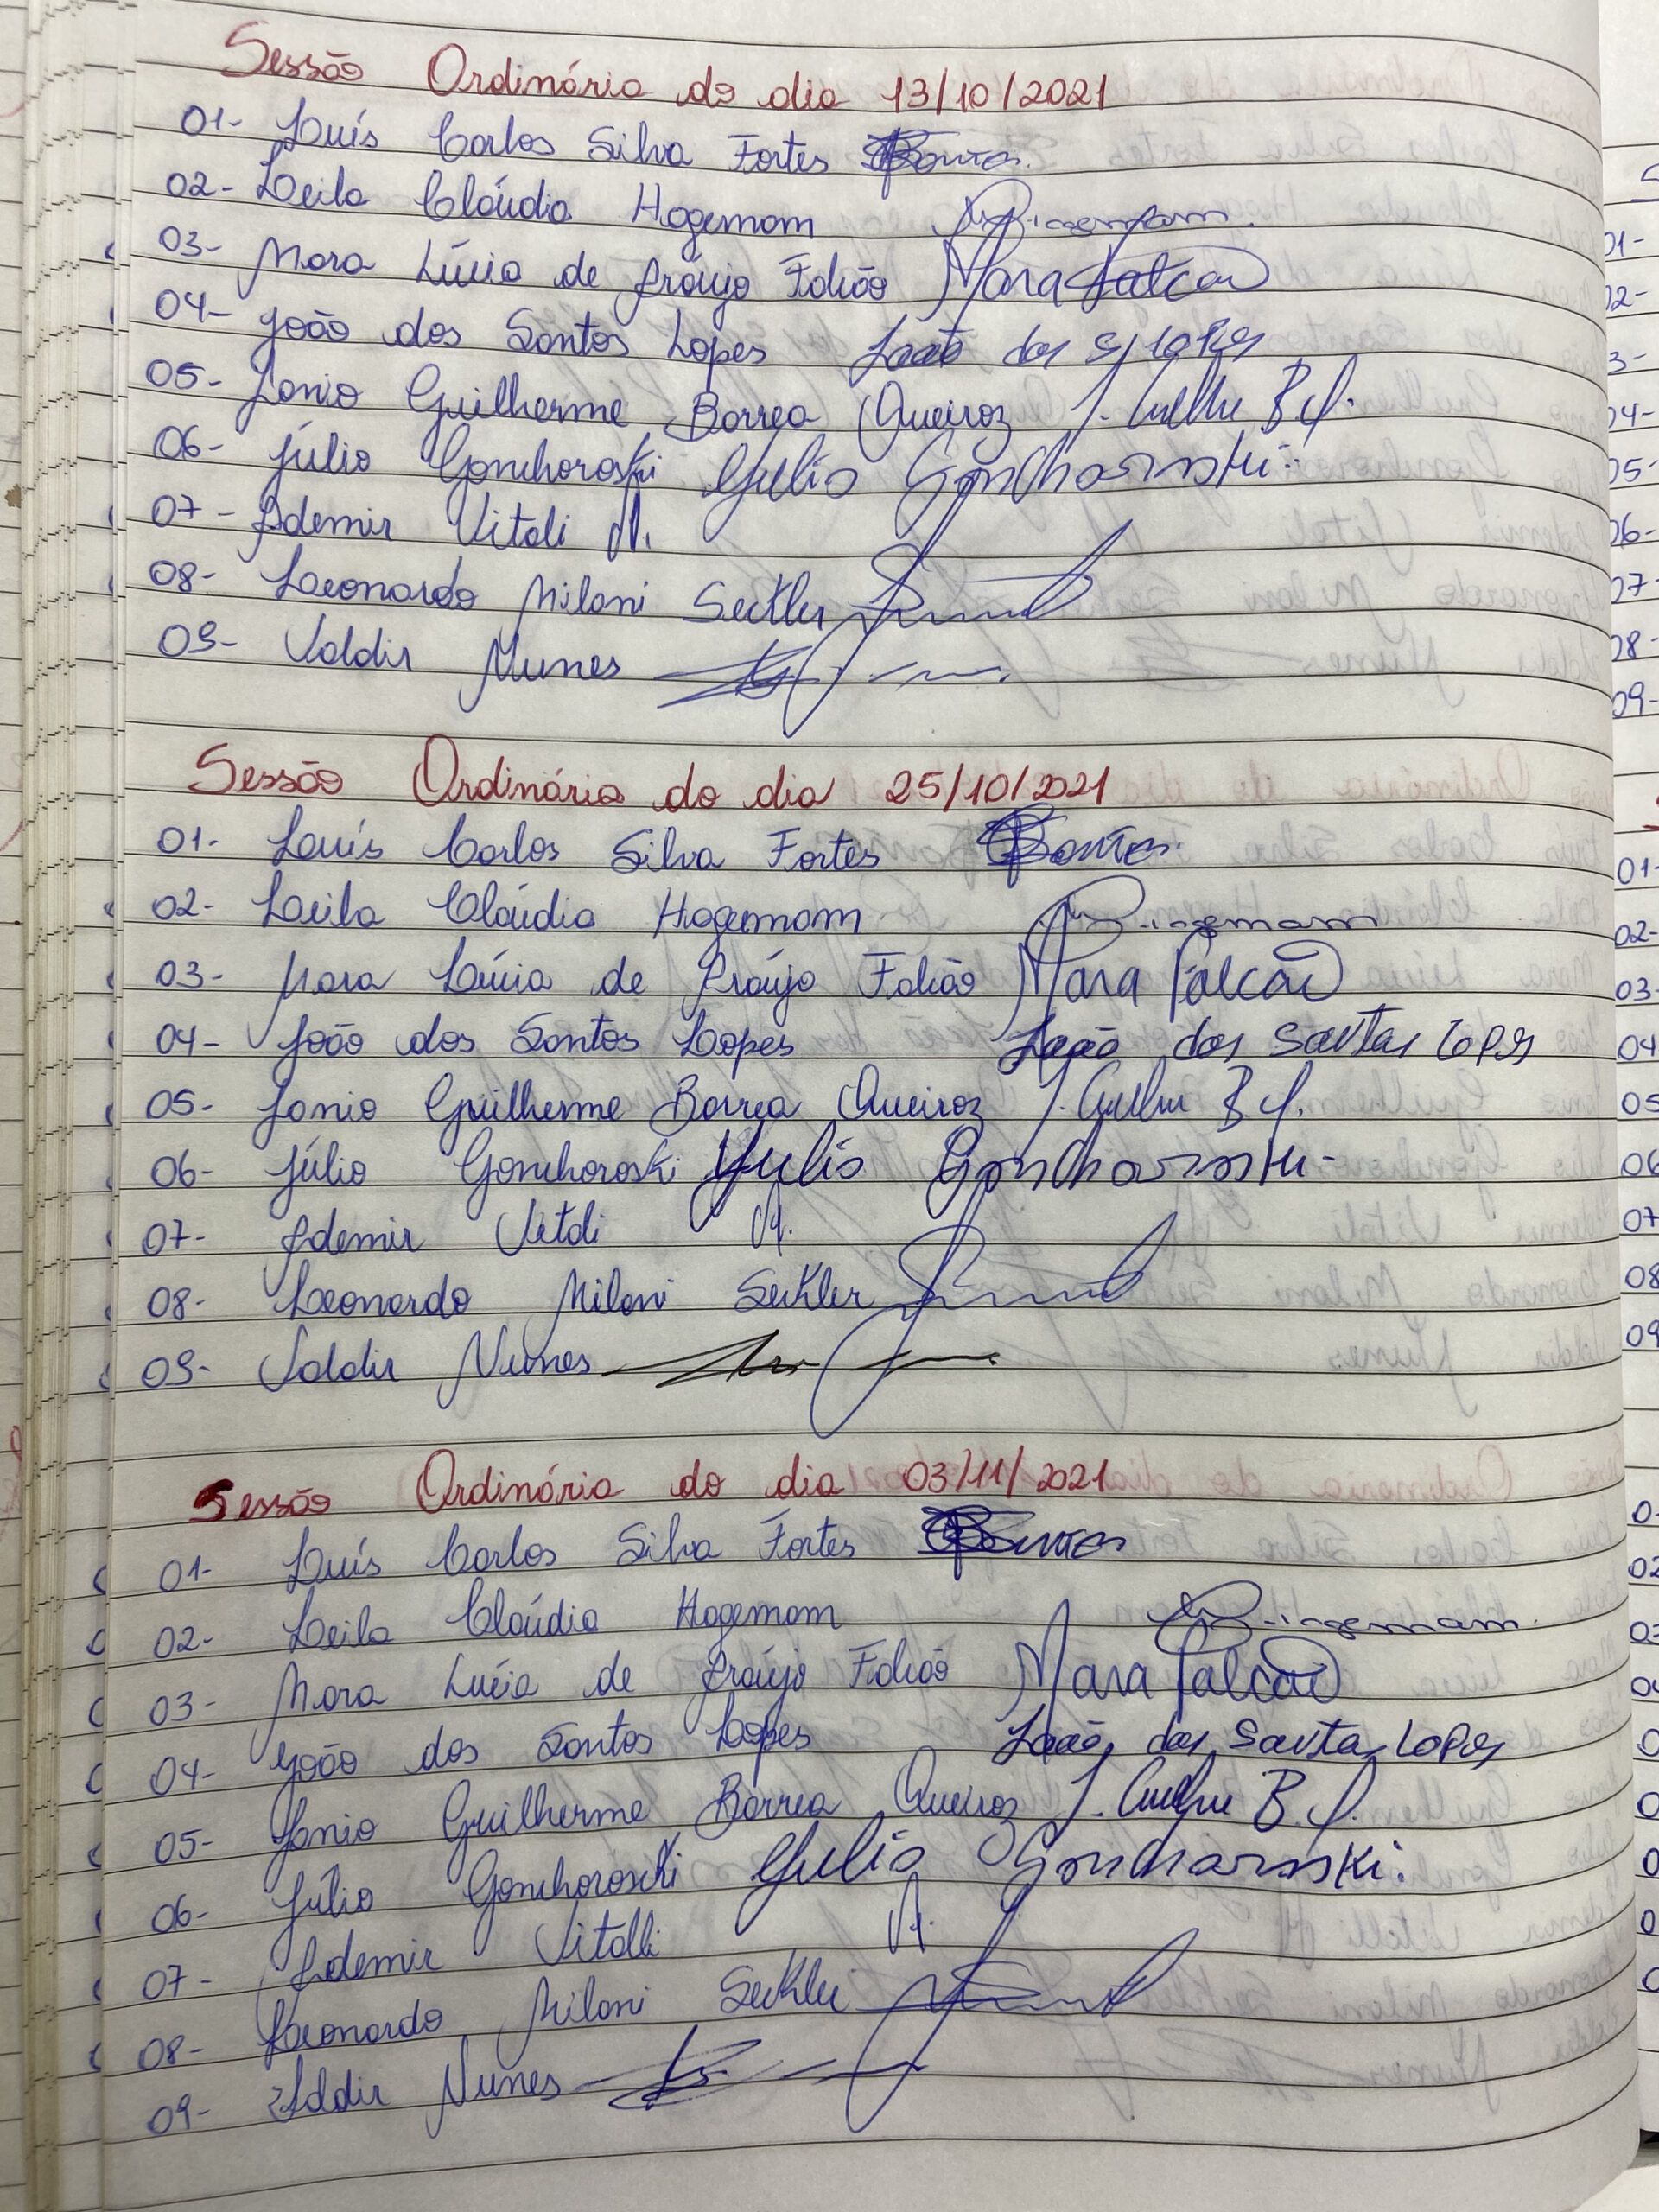 Sessão Ordinária do dia 13/10/2021
01- Luís Carlos Silva Fortes
02- Leila Cláudia Hagemam
03- Mara Lúcia de Araújo Falcão Mara Falcão
04- João dos Santos Lopes João dos S, Lopes
05- Janio Guilherme Borrea Queiroz J. Guilhe B Q.
06- Júlio Gonchoroski Julio Goncharoski
07- Ademir Vitali
08- Leonardo Milani Seckler
09- Valdir Nunes
Sessão Ordinária do dia 25/10/2021
01- Luís Carlos Silva Fortes
02- Leila Cláudia Hagemam
03- Mara Lúcia de Araújo Falcão Mara Falcão
04- João dos Santos Lopes João dos Santos Lopes
05- Janio Guilherme Borrea Queiroz J. Guilhe B Q.
06- Júlio Gonchoroski Julio Goncharoski
07- Ademir Vitali
08- Leonardo Milani Seckler
09- Valdir Nunes
Sessão Ordinária do dia 03/11/2021
01- Luís Carlos Silva Fortes
02- Leila Cláudia Hagemam
03- Mara Lucia de Araújo Falcão Mara Falcão
04- João dos Santos Lopes João dos Santos Lopes
05- Janio Guilherme Borrea Queiroz J. Guilhe B. Q.
06- Júlio Gonchoroscki Julio Goncharoski.
07- Ademir Vitalli
08- Leonardo Milani Seckler
09- Valdir Nunes